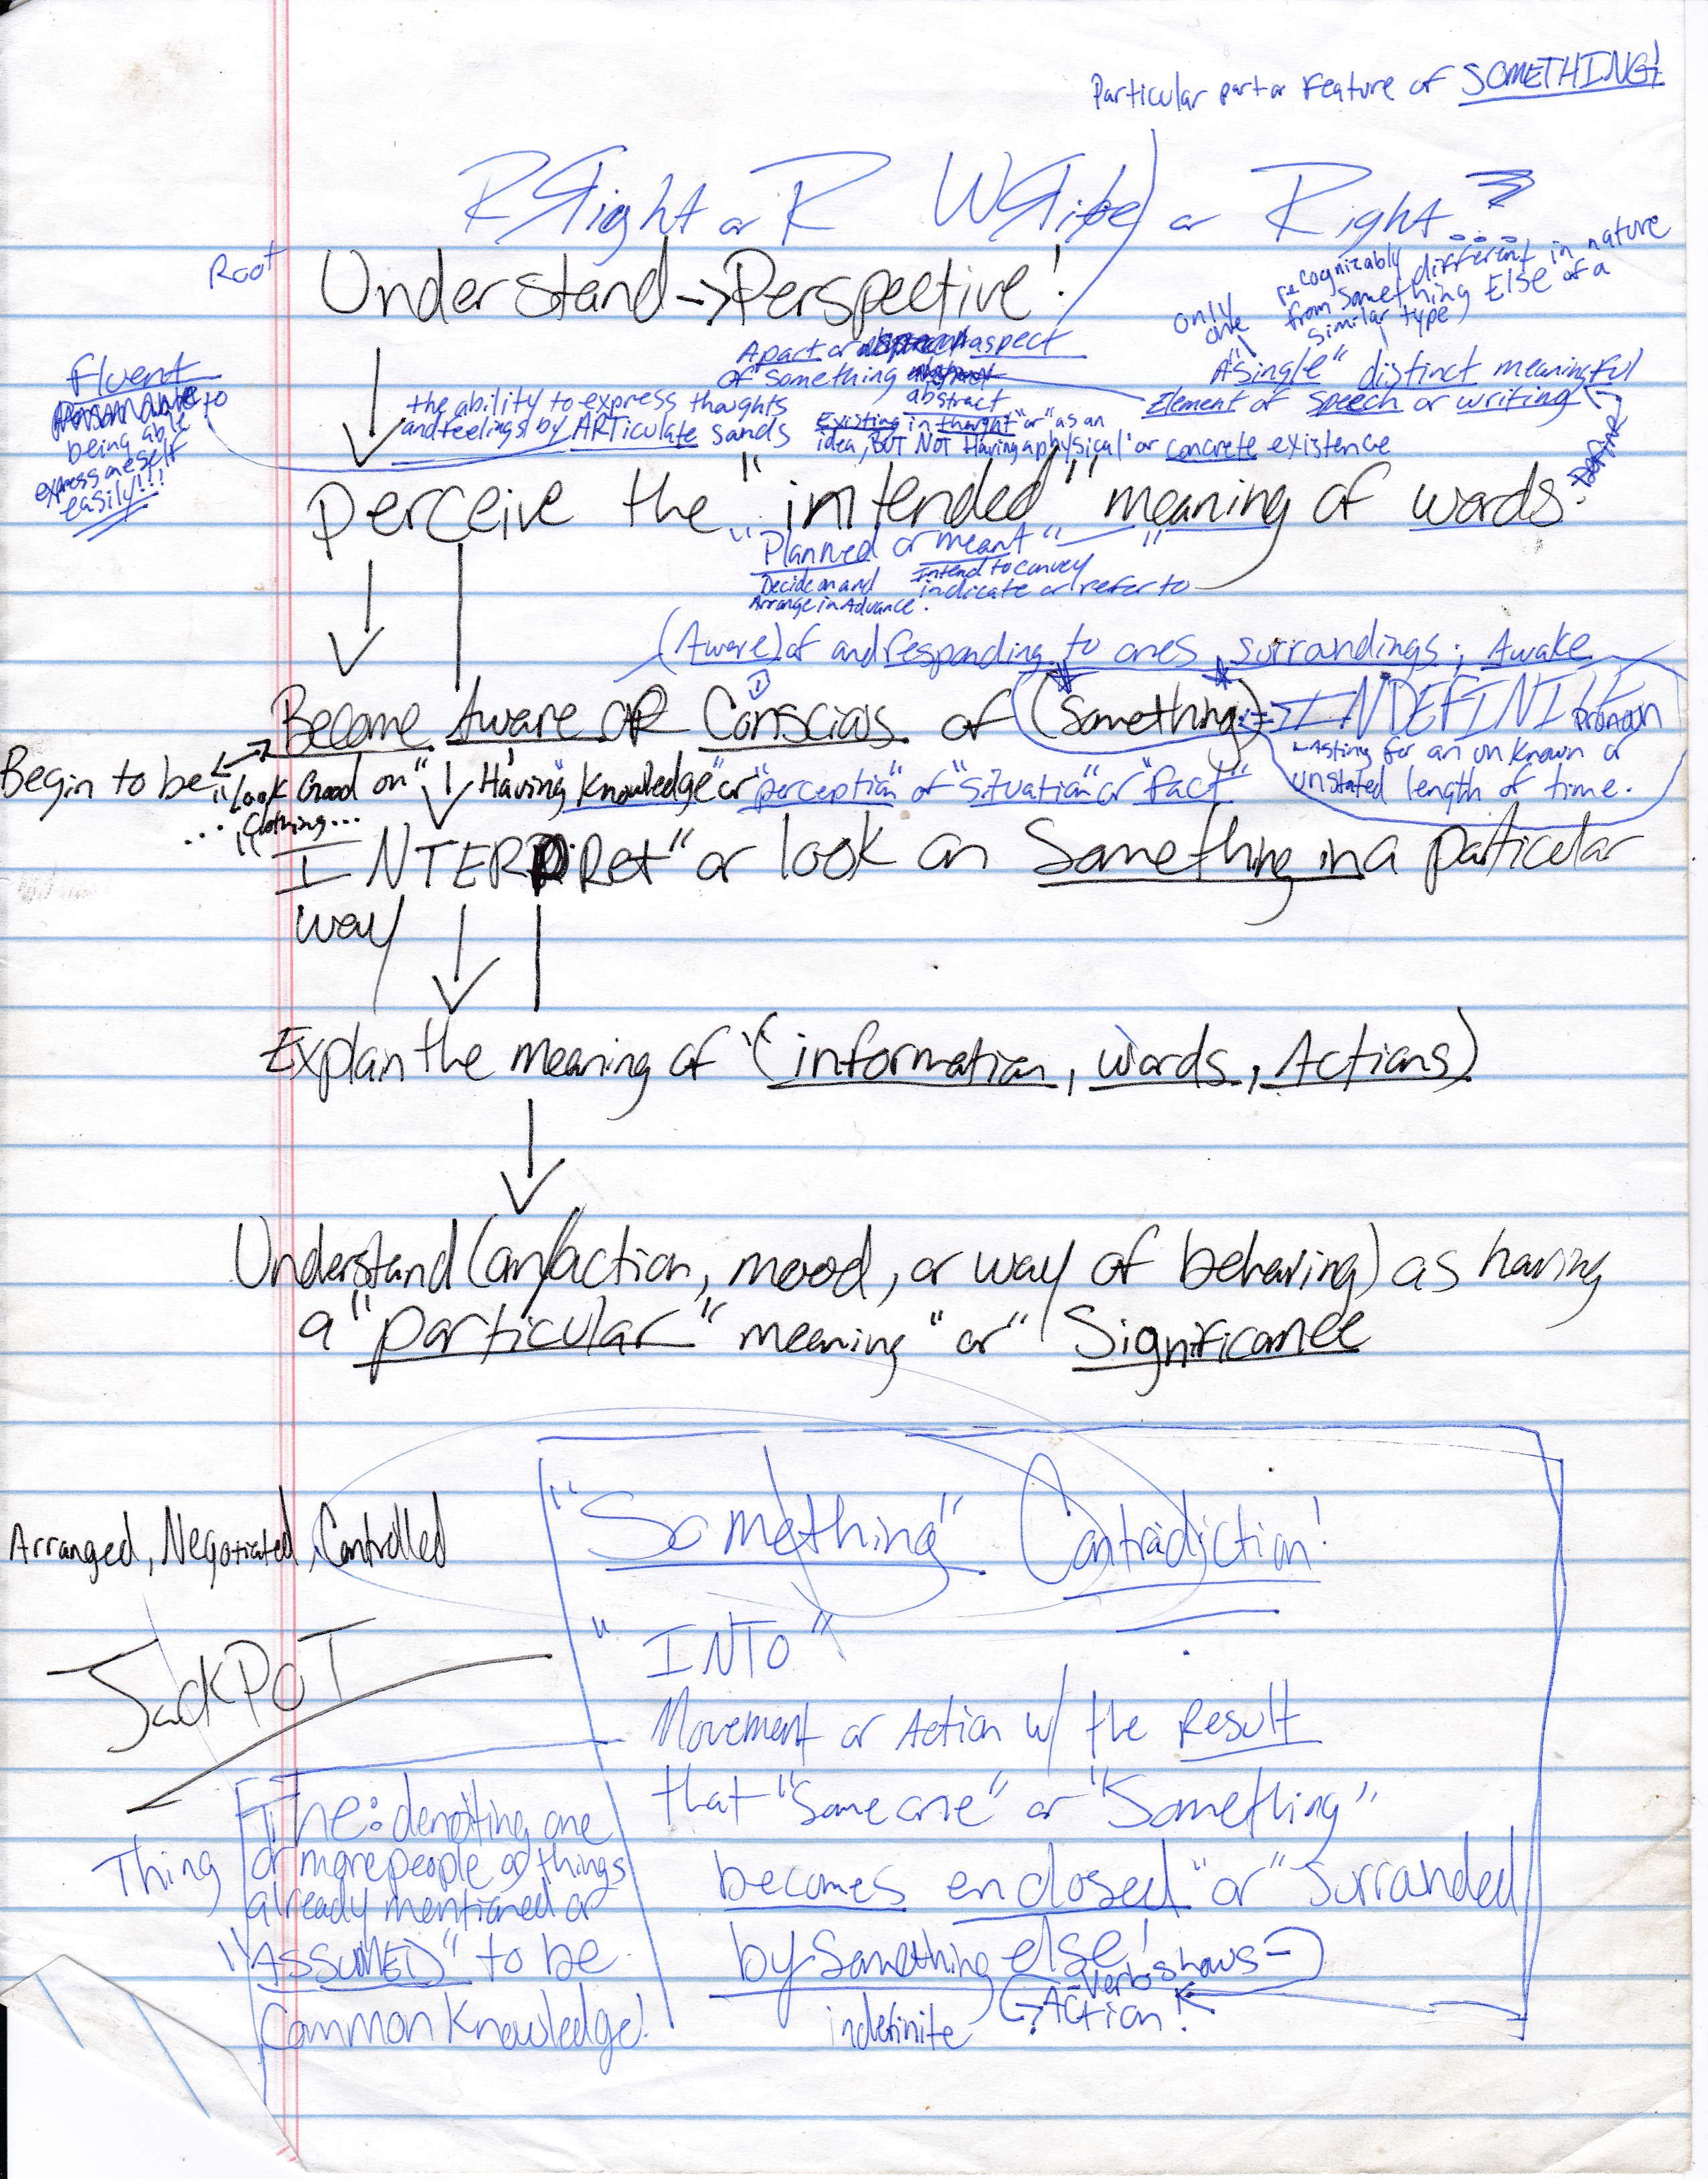 Particular part or Feature of SOMETHING!
Right or R Write or Right...?
Root
Understand->Perspective!
recognizably different in nature
from something Else of a
similar type
only
one
Apart or aspect
of something
abstract
Existing in thought "or" as an
idea, BUT NOT Having a physical or concrete existence
A "single" distinct meaningful
Element of speech or writing
Define
Fluent
to
being able
express oneself
easily!!!
the ability to express thoughts
and feelings by ARTiculate sands
perceive the "intended" meaning of words.
"Planned or meant"
Decide on and
Arrange in Advance.
Intend to convey
indicate or refer to
(Aware) of and responding to ones surroundings; Awake
Become Aware OR Conscious of (Something) => INDEFINITE pronoun
Lasting for an unknown or
unstated length of time.
Begin to be
"Look Good on"
Clothing...
Having Knowledge or "perception" of "situation" or "fact"
INTERPRet" or look on Something in a particular
way
Explan the meaning of "(information, words, Actions)
Understand (an action, mood, or way of behaving) as having
a "particular" meaning "or" Significance
Arranged, Negotiated, Controlled
"Something" Contradiction!
JackPOT
"INTO"
Movement or Action w/ the Result
that "Some one" or "Something"
becomes enclosed "or" Surrounded
by Something else!
indefinite
Verb shows
Action!
Thing
The: denoting one
or more people or things
already mentioned or
"ASSUMED" to be
Common Knowledge!